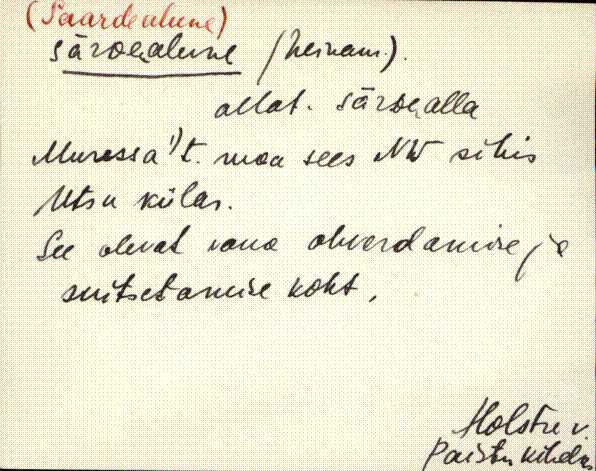 (Saardealune)
särdealune (heinam.).
allat. särdealla
Muressa't. maa sees NW sihis
Utsu külas.
See olevat vana ohverdamise ja
suitsetamise koht,
Holstre v.
Paistu kihelk.